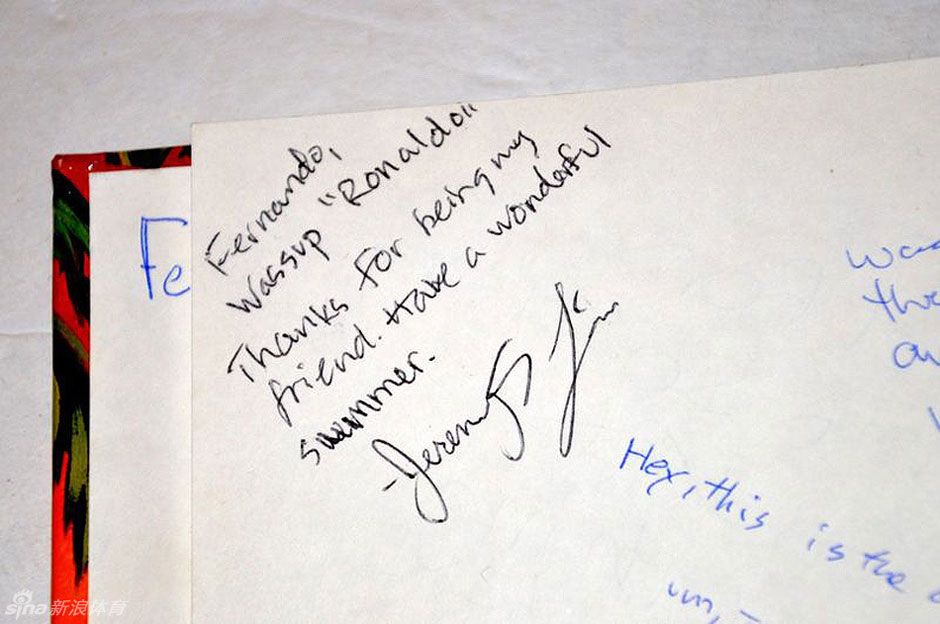 Fernando,
Wassup "Ronaldo"
Thanks for being my
friend. Have a wonderful
summer.
-Jeremy Lin
Fe
Hey, this is the
um, -
sina新浪体育